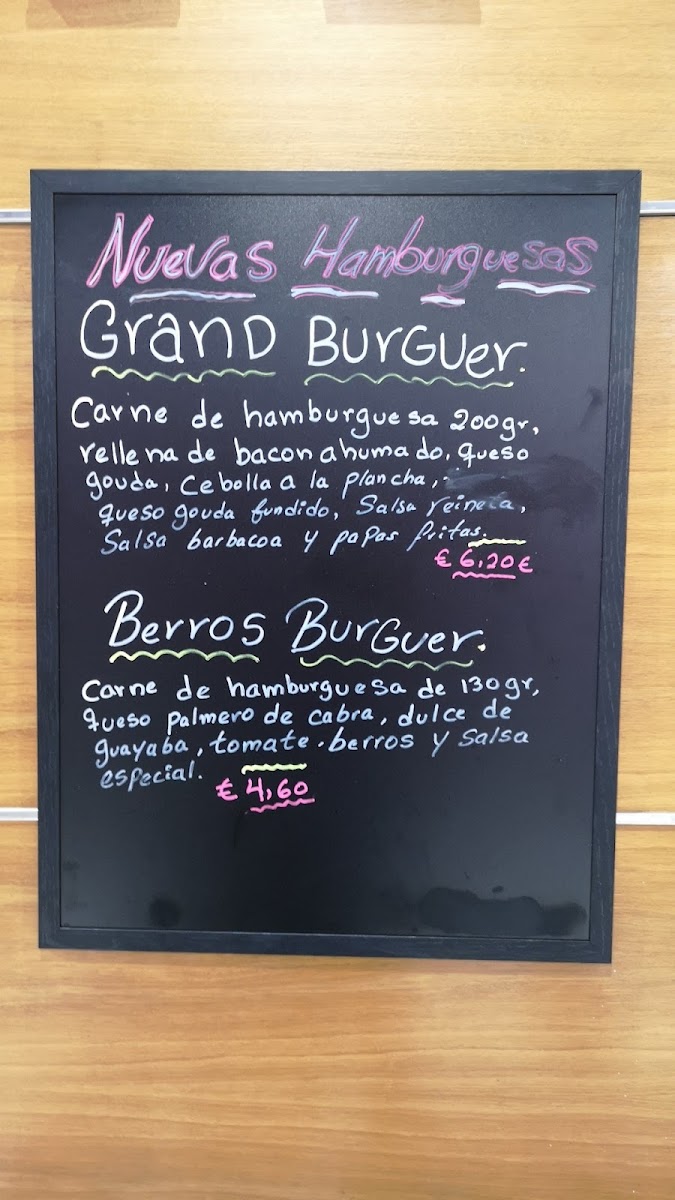 Nuevas Hamburguesas
GRAND BURGUER.
Carne de hamburguesa 200gr,
rellena de bacon ahumado, queso
gouda, cebolla a la plancha,
queso gouda fundido, Salsa reineta,
Salsa barbacoa y papas fritas.
€ 6,20 €
Berros BurGuer.
Carne de hamburguesa de 130gr,
queso palmero de cabra, dulce de
guayaba, tomate. berros y salsa
especial.
€ 4,60